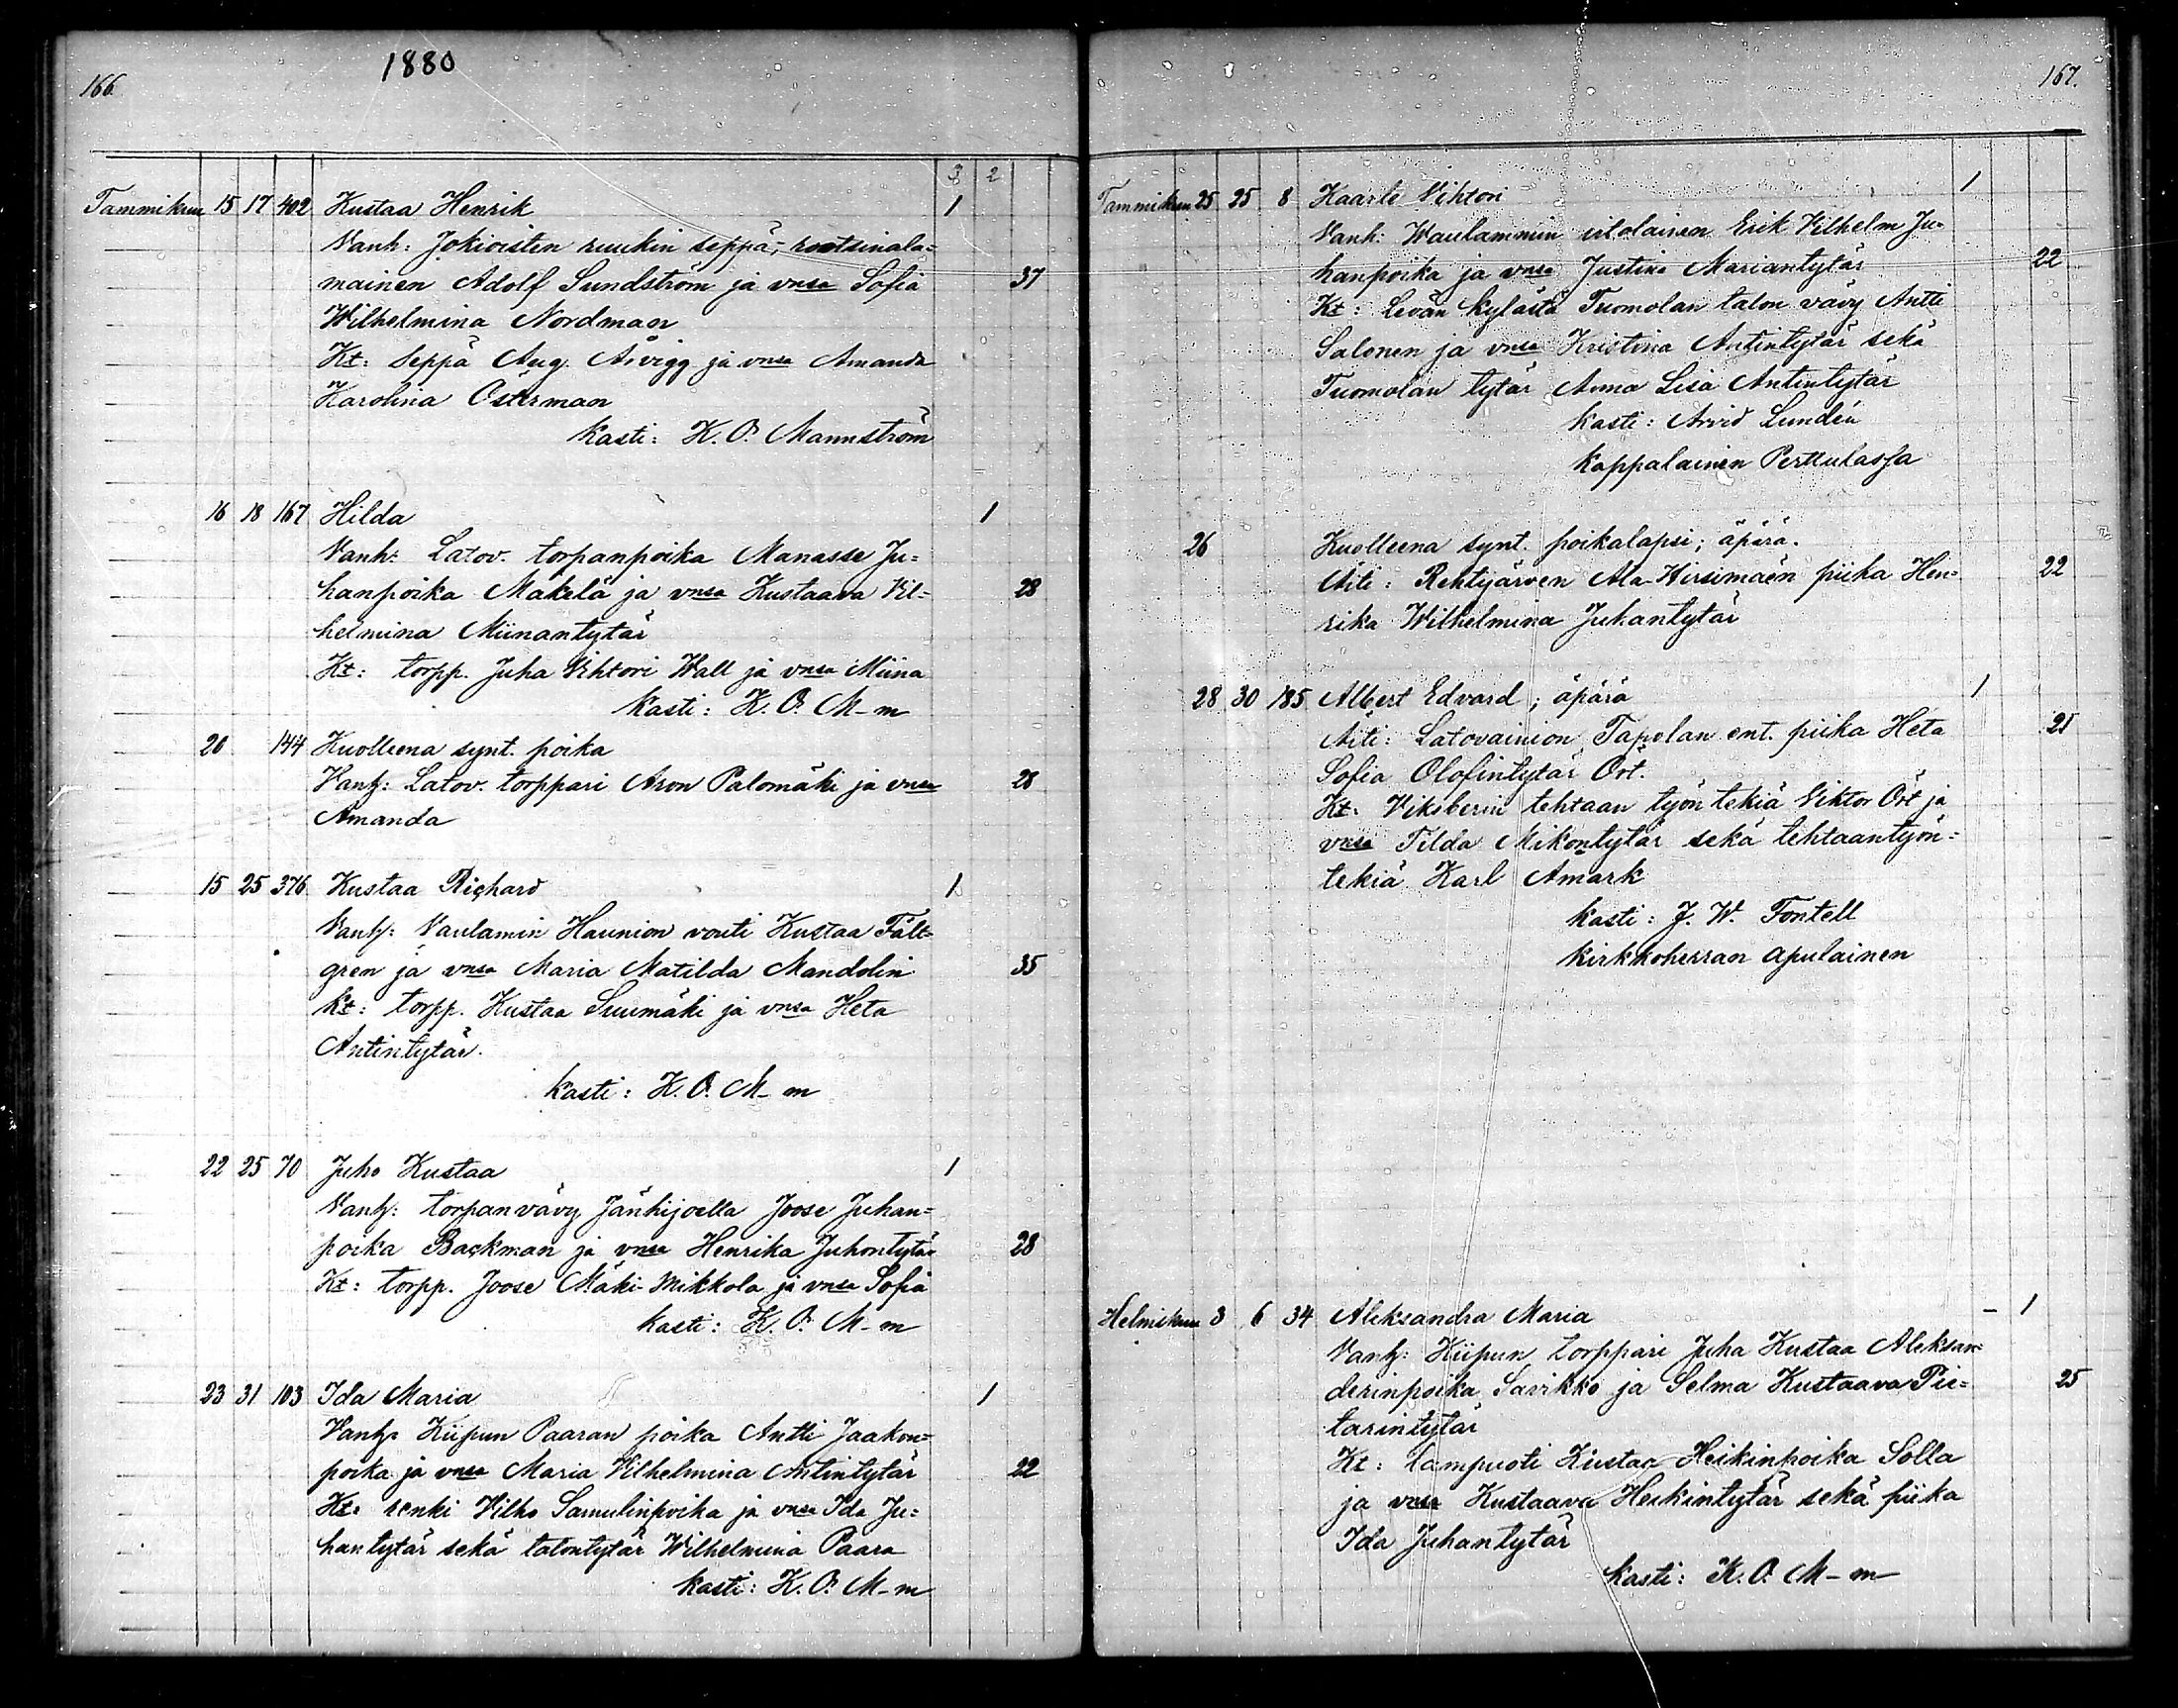 166
1880
3 2
Tammikuu 15 17 402 Kustaa Henrik 1
Vanh: Jokioisten ruukin seppä, ruotsinala=
mainen Adolf Sundström ja vnsa Sofia 37
Wilhelmina Nordman
Kt: Seppä Aug. Arvigg ja vnsa Amanda
Karolina Österman
Kasti: K. O. Mannström
16 18 167 Hilda 1
Vanh: Latov. torpanpoika Manasse Ju=
hanpoika Mäkelä ja vnsa Kustaava Vil= 28
helmina Miinantytär
Kt: torpp. Juha Vihtori Wall ja vnsa Miina
Kasti: K. O. M-m
20 144 Kuolleena synt. poika
Vanh: Latov. torppari Aron Palomäki ja vnsa 28
Amanda
15 25 376 Kustaa Richard 1
Vanh: Vaulamin Haunion vouti Kustaa Fält=
gren ja vnsa Maria Matilda Mandolin 35
Kt: torpp. Kustaa Suumäki ja vnsa Heta
Antintytär.
Kasti: K. O. M-m
22 25 70 Juho Kustaa 1
Vanh: torpanvävy Jänhijoella Joose Juhan=
poika Backman ja vnsa Henrika Juhontytär 28
Kt: torpp. Joose Mäki-Mikkola ja vnsa Sofia
Kasti: K. O. M-m
23 31 103 Ida Maria 1
Vanh: Kiipun Paaran poika Antti Jaakon=
poika ja vnsa Maria Vilhelmina Antintytär 22
Kt: renki Vilho Samulinpoika ja vnsa Ida Ju=
hantytär sekä talontytär Wilhelmina Paara
Kasti: K. O. M-m
167.
Tammikuu 25 25 8 Kaarlo Vihtori 1
Vanh: Waulammin itolainen Erik Vilhelm Ju=
hanpoika ja vnsa Justina Mariantytär 22
Kt: Levän kylästä Tuomolan talon vävy Antti
Salonen ja vnsa Kristina Antintytär sekä
Tuomolan tytär Anna Lisa Antintytär
Kasti: Arvid Lundén
Kappalainen Perttulassa
26 Kuolleena synt. poikalapsi; äpärä.
Äiti: Rehtijärven Ala-Hirsimäen piika Hen= 22
rika Wilhelmina Juhantytär
28 30 185 Albert Edvard; äpärä 1
Äiti: Latovainion Tapolan ent. piika Heta 21
Sofia Olofintytär Öst.
Kt: Viksberin tehtaan työn tekiä Viktor Öst ja
vnsa Tilda Mikontytär sekä tehtaantyön=
tekiä Karl Amark
Kasti: J. W. Fontell
Kirkkoherran apulainen
Helmikuu 3 6 34 Aleksandra Maria - 1
Vanh: Kiipun torppari Juha Kustaa Aleksan=
derinpoika Savikko ja Selma Kustaava Pie= 25
tarintytär
Kt: Lampuoti Kustaa Heikinpoika Solla
ja vnsa Kustaava Heikintytär sekä piika
Ida Juhantytär
Kasti: K. O. M-m